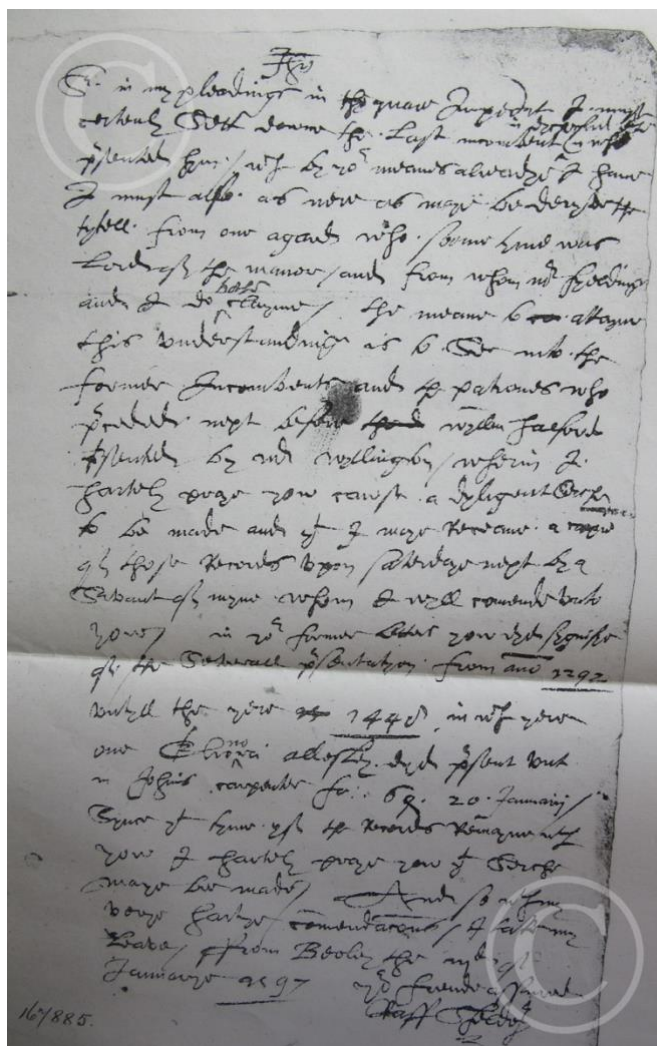 Jhus
Sr in my pleadings in the quare Impedit I must
certenly sett downe the Last incombent deceased & who
p'sented hym / wch by yor meanes alreadye I have
I must also as nere as maye be deryve the
tytell from one agard who some tyme was
Lord of the manor / and from whom mr
and I do bothe clayme / the meane to attayne
this understandinge is to See into the
former Incombents and the patrones who
p'ceded next before Wyllm halford
p'sented by mr Wyllington / wherin I
hartely praye yow cause a dyligent Serche
to be made and yt I maye Receave a
of those Records upon saterdaye next by a
Servant of myne whom I wyll comende unto
yowe / in yor former letter yow dyd sygnifye
of the Severall p'sentatyon from ano 1292
untyll the yere 1448, in wch yere
one allestry dyd p'sent
Johis carpenter fo: 69. 20 Januarij /
Synce yt tyme yf the Records Remayne wth
yow I hartely praye yow yt Serche
maye be made / And so wth my
verye hartye comendacons / I take my
Leave / From Beoley the of
Januarye 1597 yor frende assured
Raff
167885.